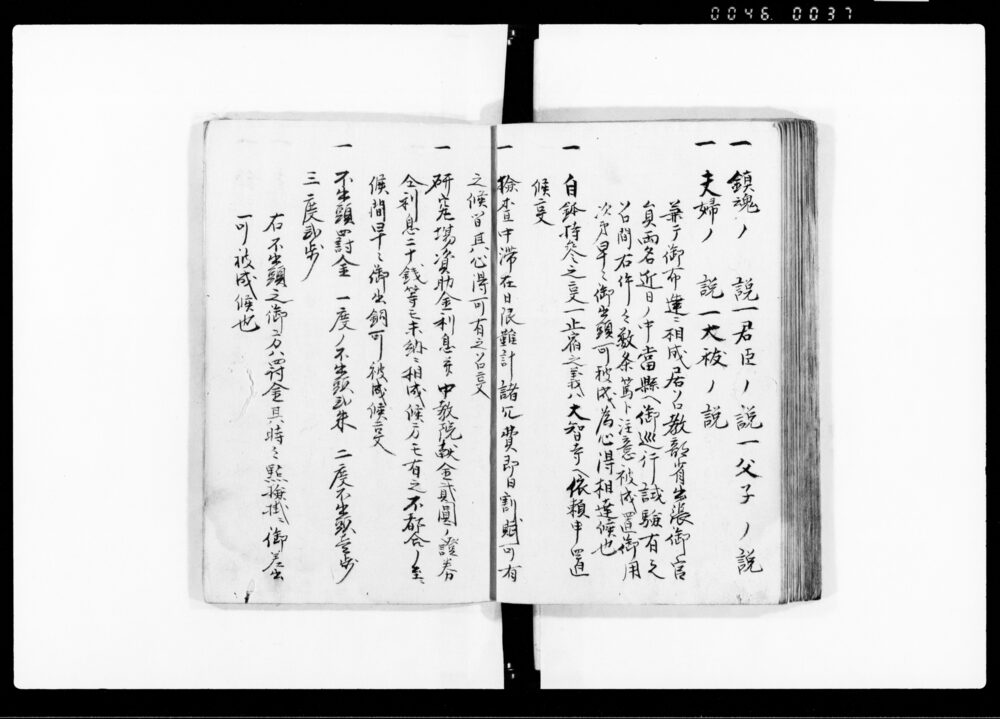 0046 0037
一 鎮魂ノ説 一 君臣ノ説 一 父子ノ説
一 夫婦ノ説 一 大祓ノ説
兼テ御布達ニ相成居候教部省出張御官
員両名近日ノ中當縣ヘ御巡行試驗有之
候間右件々教条篤ト注意被成置御用
次第早々御出頭可被成為心得相達候也
一 自鉢持参之事 一 止宿之義ハ大智寺ヘ依頼申置
候事
一 檢查中滞在日限難計諸冗費即日割賦可有
之候間其心得可有之候事
一 研究場資助金利息并中教院献金貳圓ノ證券
全利息二十銭等モ未納ニ相成候方モ有之不都合ノ至ニ
候間早々御出銅可被成候事
一 不出頭罰金 一度ノ不出頭弐朱 二度不出頭壱歩
三度弐歩
右不出頭之御方ハ罰金其時々點検掛ヘ御差出
可被成候也